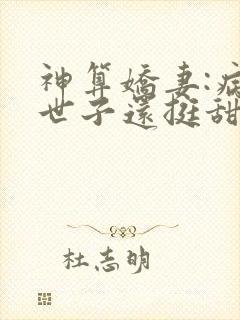 神算嬌妻:病
世子還挺甜
杜志明